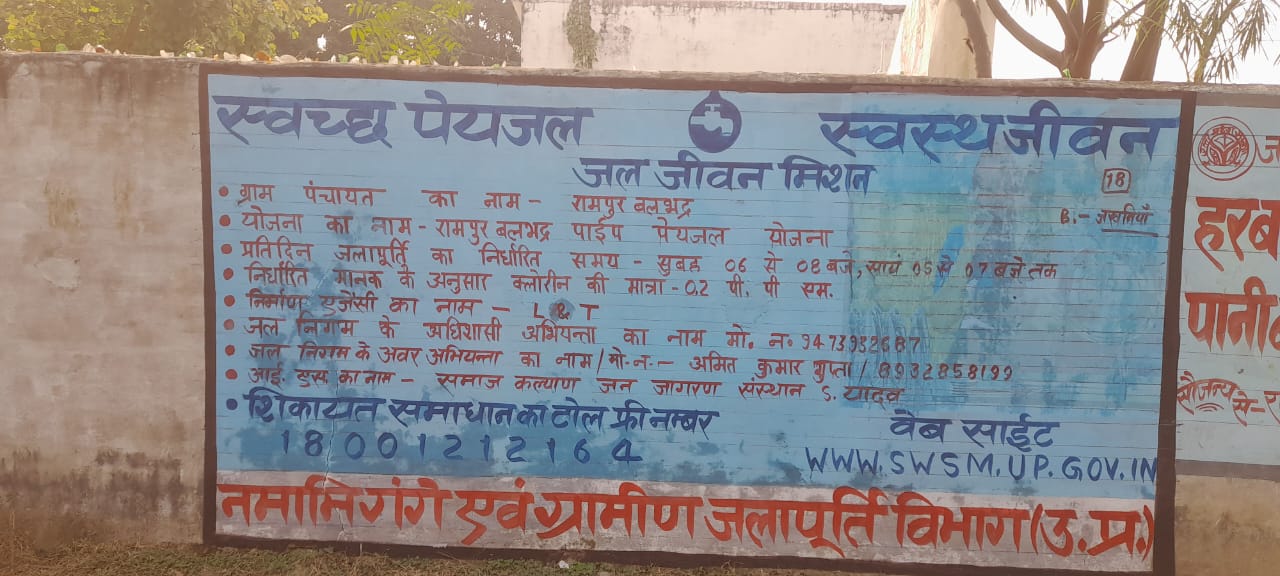 स्वच्छ पेयजल स्वस्थजीवन
जल जीवन मिशन
18
B:- अखनियाँ
• ग्राम पंचायत का नाम - रामपुर बलभद्र
• योजना का नाम - रामपुर बलभद्र पाईप पेयजल योजना
• प्रतिदिन जलापूर्ति का निर्धारित समय - सुबह 06 से 08 बजे, सायं 05 से 07 बजे तक
• निर्धारित मानक के अनुसार क्लोरीन की मात्रा - 0.2 पी. पी एम.
• निर्माण एजेंसी का नाम - L & T
• जल निगम के अधिशासी अभियन्ता का नाम मो. न० 9473932687
• जल निगम के अवर अभियन्ता का नाम/मो.न.- अमित कुमार गुप्ता / 8932858199
• आई. एस का नाम - समाज कल्याण जन जागरण संस्थान S. यादव
• शिकायत समाधान का टोल फ्री नम्बर
18001212164
वेब साईट
WWW.SWSM.UP.GOV.IN
नमामि गंगे एवं ग्रामीण जलापूर्ति विभाग (उ.प्र.)
हरब
पानी
सौजन्य से-